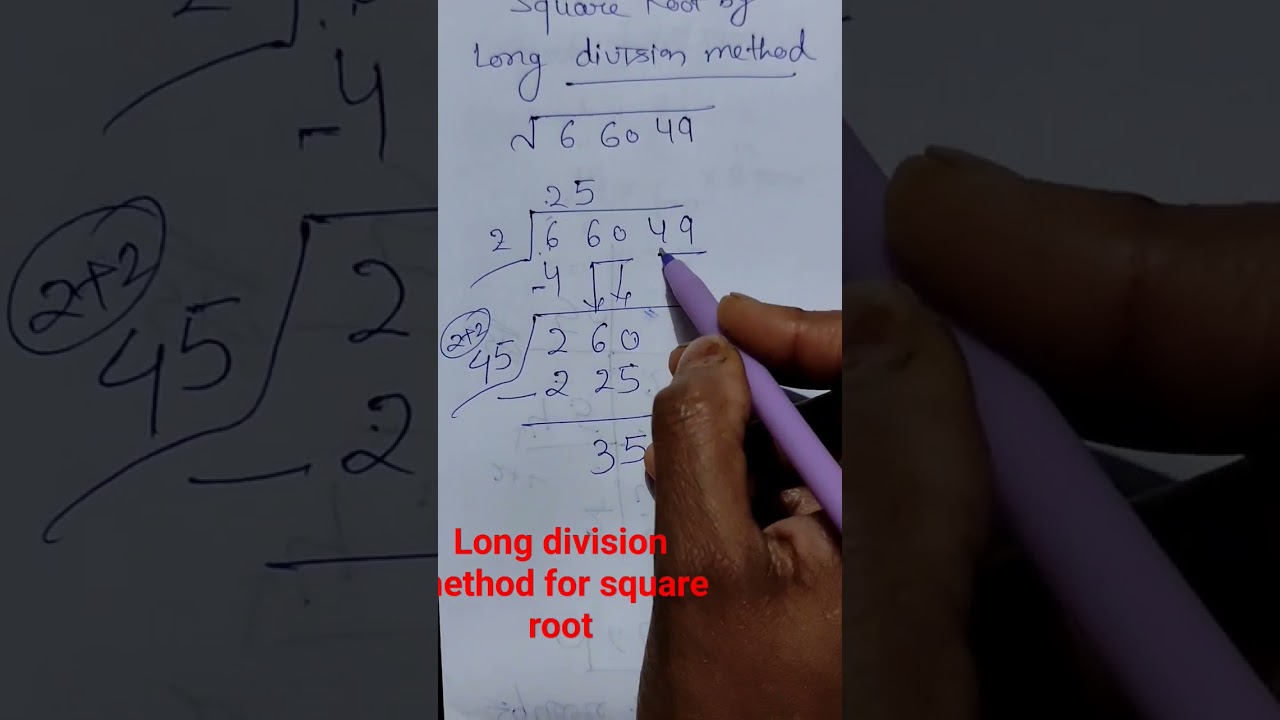 Square Root by
Long division method
√6 60 49
25
2 6 60 49
-4
2+2
45 2 60
- 2 25
35
Long division
method for square
root